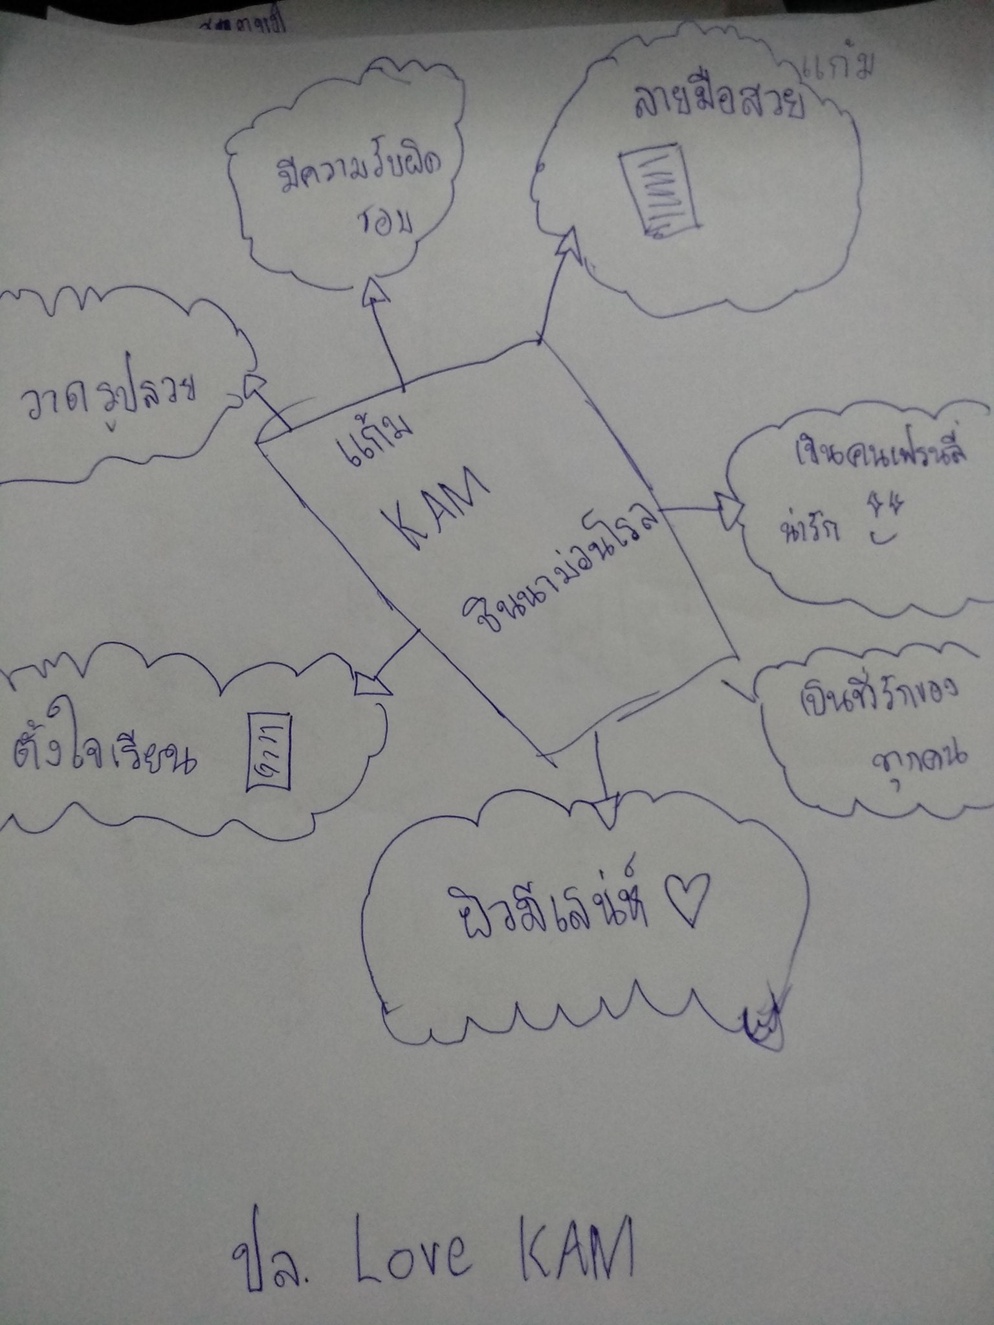 แก้ม
ลายมือสวย
มีความรับผิด
ชอบ
วาดรูปสวย
แก้ม
KAM
ซินนาม่อนโรล
เป็นคนเฟรนลี่
น่ารัก
ตั้งใจเรียน
เป็นที่รักของ
ทุกคน
ผิวมีเสน่ห์
ปล. Love KAM